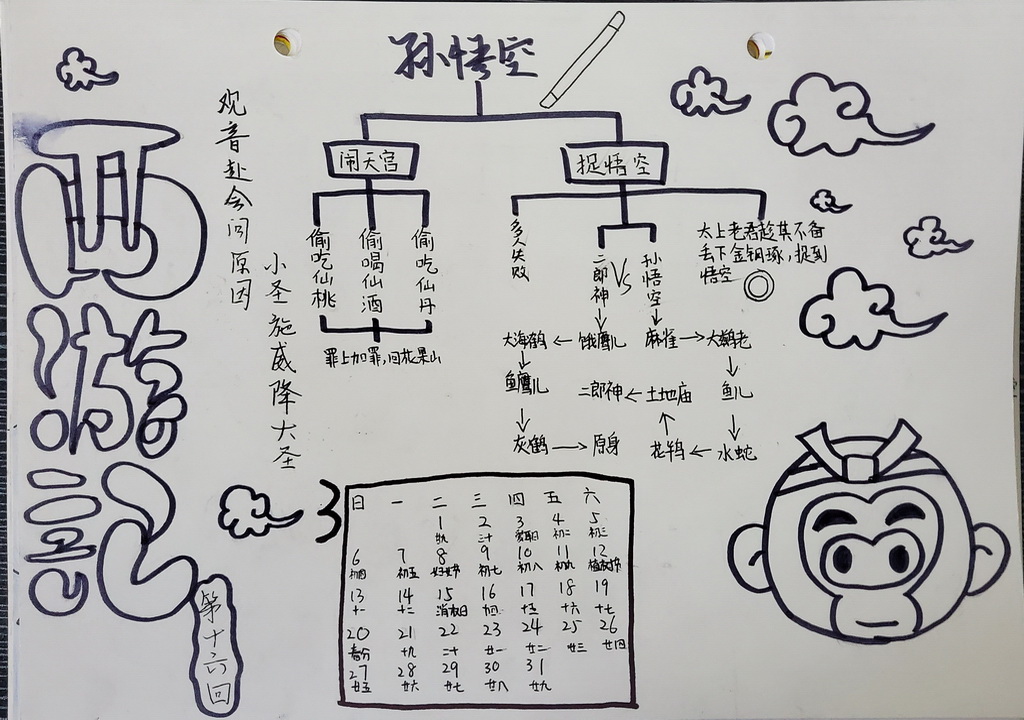 西游記
第十六回
观音赴会问原因
小圣施威降大圣
孙悟空
闹天宫
偷吃仙桃
偷喝仙酒
偷吃仙丹
罪上加罪,回花果山
捉悟空
多人失败
二郎神
VS
孙悟空
太上老君趁其不备
丢下金钢琢,捉到
悟空
饿鹰儿
大海鹤
鱼鹰儿
灰鹤
原身
麻雀
大鹚老
鱼儿
水蛇
花鸨
土地庙
二郎神
3
日 一 二 三 四 五 六
1 2 3 4 5
廿九 三十 爱耳日 初二 初三
6 7 8 9 10 11 12
初四 初五 妇女节 初七 初八 初九 植树节
13 14 15 16 17 18 19
十一 十二 消权日 十四 十五 十六 十七
20 21 22 23 24 25 26
春分 十九 二十 廿一 廿二 廿三 廿四
27 28 29 30 31
廿五 廿六 廿七 廿八 廿九